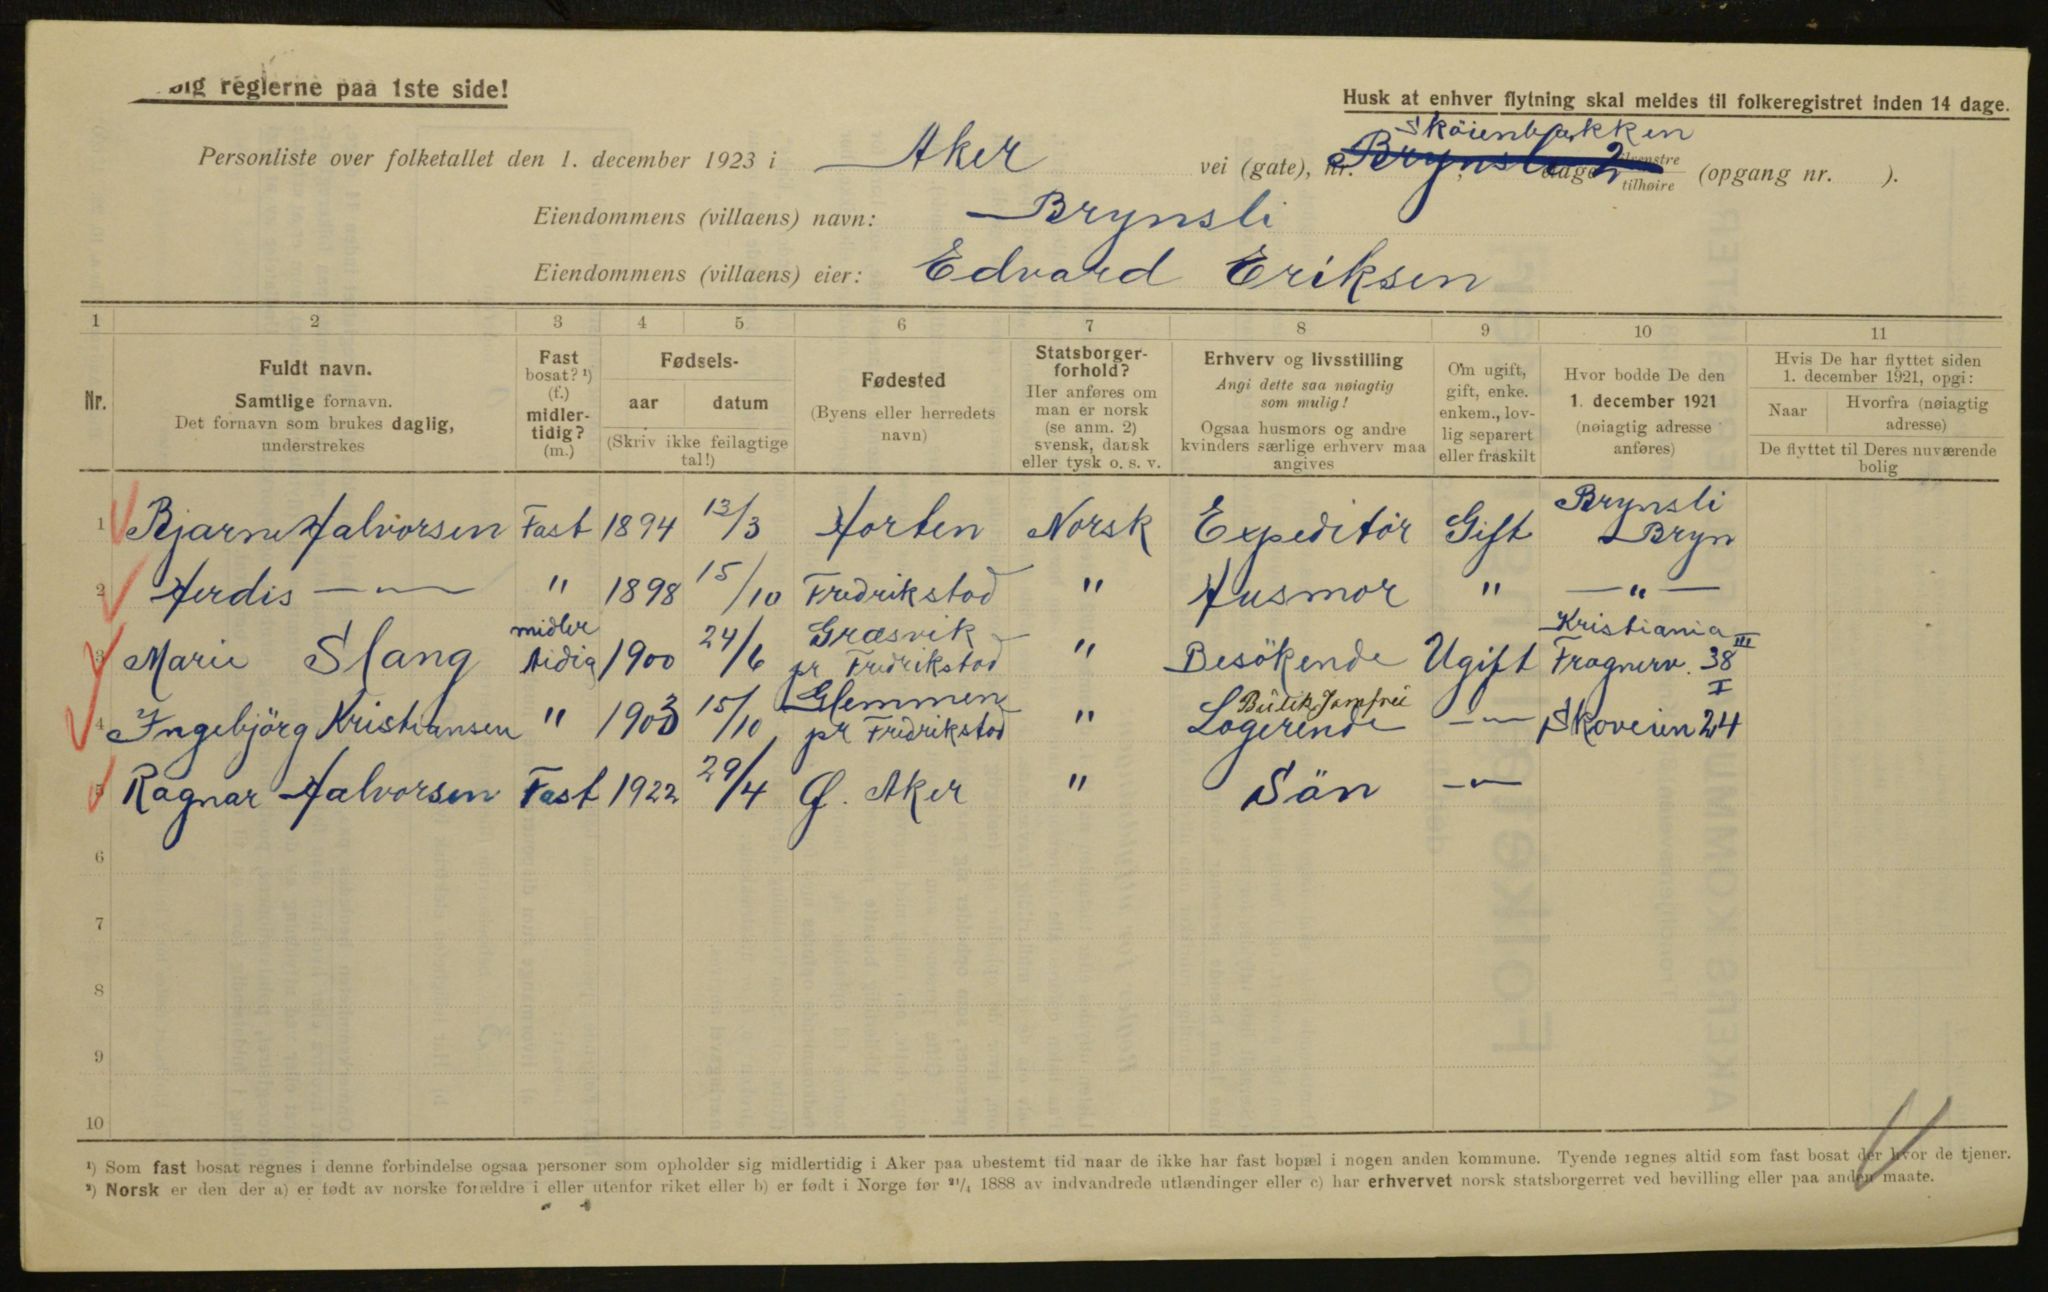 big reglerne paa 1ste side!
Husk at enhver flytning skal meldes til folkeregistret inden 14 dage.
Skøienbakken
Personliste over folketallet den 1. december 1923 i Aker vei (gate), nr. Brynsli 2 etage tilvenstre tilhøire (opgang nr. ).
Eiendommens (villaens) navn: Brynsli
Eiendommens (villaens) eier: Edvard Eriksen
1 2 3 4 5 6 7 8 9 10 11
Nr.
Fuldt navn.
Samtlige fornavn.
Det fornavn som brukes daglig,
understrekes
Fast
bosat? ¹)
(f.)
midler-
tidig?
(m.)
Fødsels-
aar datum
(Skriv ikke feilagtige
tal!)
Fødested
(Byens eller herredets
navn)
Statsborger-
forhold?
Her anføres om
man er norsk
(se anm. 2)
svensk, dansk
eller tysk o. s. v.
Erhverv og livsstilling
Angi dette saa nøiagtig
som mulig!
Ogsaa husmors og andre
kvinders særlige erhverv maa
angives
Om ugift,
gift, enke.
enkem., lov-
lig separert
eller fraskilt
Hvor bodde De den
1. december 1921
(nøiagtig adresse
anføres)
Hvis De har flyttet siden
1. december 1921, opgi:
Naar
Hvorfra (nøiagtig
adresse)
De flyttet til Deres nuværende
bolig
1 Bjarne Halvorsen Fast 1894 13/3 Horten Norsk Expeditør Gift Brynsli
Bryn
2 Herdis —"— " 1898 15/10 Fredrikstad " Husmor " —"—
3 Marie Slang midler
tidig 1900 24/6 Græsvik
pr Fredrikstad " Besökende Ugift Kristiania
Frognerv. 38 III
4 Ingebjörg Kristiansen " 1903 15/10 Glemmen
pr Fredrikstad " Butik Jomfru
Logerende —"— Skoveien 24 I
5 Ragnar Halvorsen Fast 1922 29/4 Ø. Aker " Sön —"—
6
7
8
9
10
¹) Som fast bosat regnes i denne forbindelse ogsaa personer som opholder sig midlertidig i Aker paa ubestemt tid naar de ikke har fast bopæl i nogen anden kommune. Tyende regnes altid som fast bosat der hvor de tjener.
²) Norsk er den der a) er født av norske forældre i eller utenfor riket eller b) er født i Norge før ²¹/₄ 1888 av indvandrede utlændinger eller c) har erhvervet norsk statsborgerret ved bevilling eller paa anden maate.